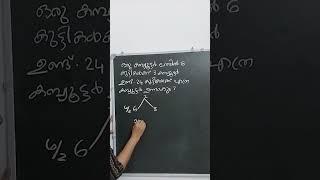 ഒരു കമ്പ്യൂട്ടർ ലാബിൽ 6
കുട്ടികൾക്ക് 3 കമ്പ്യൂട്ടർ
ഉണ്ട്. 24 കുട്ടികൾക്ക് എത്ര
കമ്പ്യൂട്ടർ ഉണ്ടാകും ?
6/2 6 3